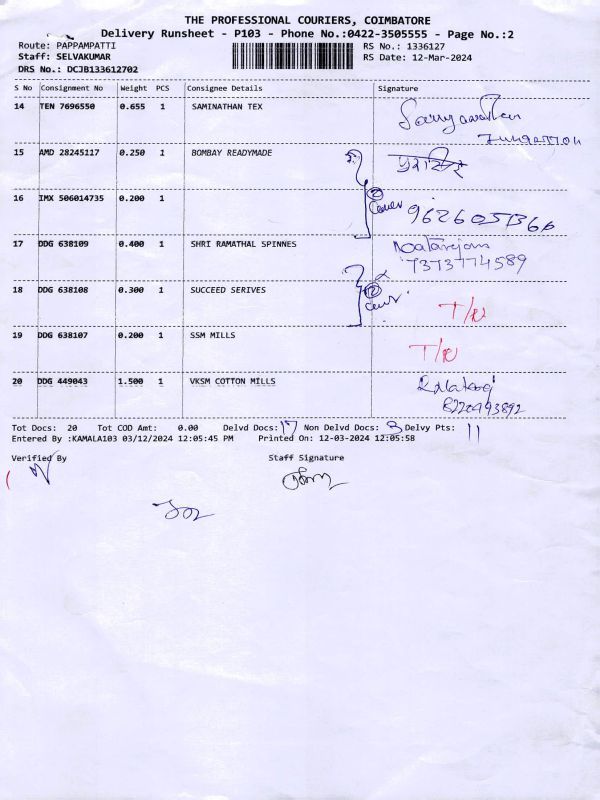 THE PROFESSIONAL COURIERS, COIMBATORE
Delivery Runsheet - P103 - Phone No.:0422-3505555 - Page No.:2
Route: PAPPAMPATTI
Staff: SELVAKUMAR
DRS No.: DCJB133612702
RS No.: 1336127
RS Date: 12-Mar-2024
S No Consignment No Weight PCS Consignee Details Signature
14 TEN 7696550 0.655 1 SAMINATHAN TEX
15 AMD 28245117 0.250 1 BOMBAY READYMADE
16 IMX 506014735 0.200 1
② Cover
17 DDG 638109 0.400 1 SHRI RAMATHAL SPINNES
7373774589
18 DDG 638108 0.300 1 SUCCEED SERIVES
② Cover
T/R
19 DDG 638107 0.200 1 SSM MILLS
T/R
20 DDG 449043 1.500 1 VKSM COTTON MILLS
8220493892
Tot Docs: 20 Tot COD Amt: 0.00 Delvd Docs: 17 Non Delvd Docs: 3 Delvy Pts: 11
Entered By :KAMALA103 03/12/2024 12:05:45 PM Printed On: 12-03-2024 12:05:58
Verified By Staff Signature